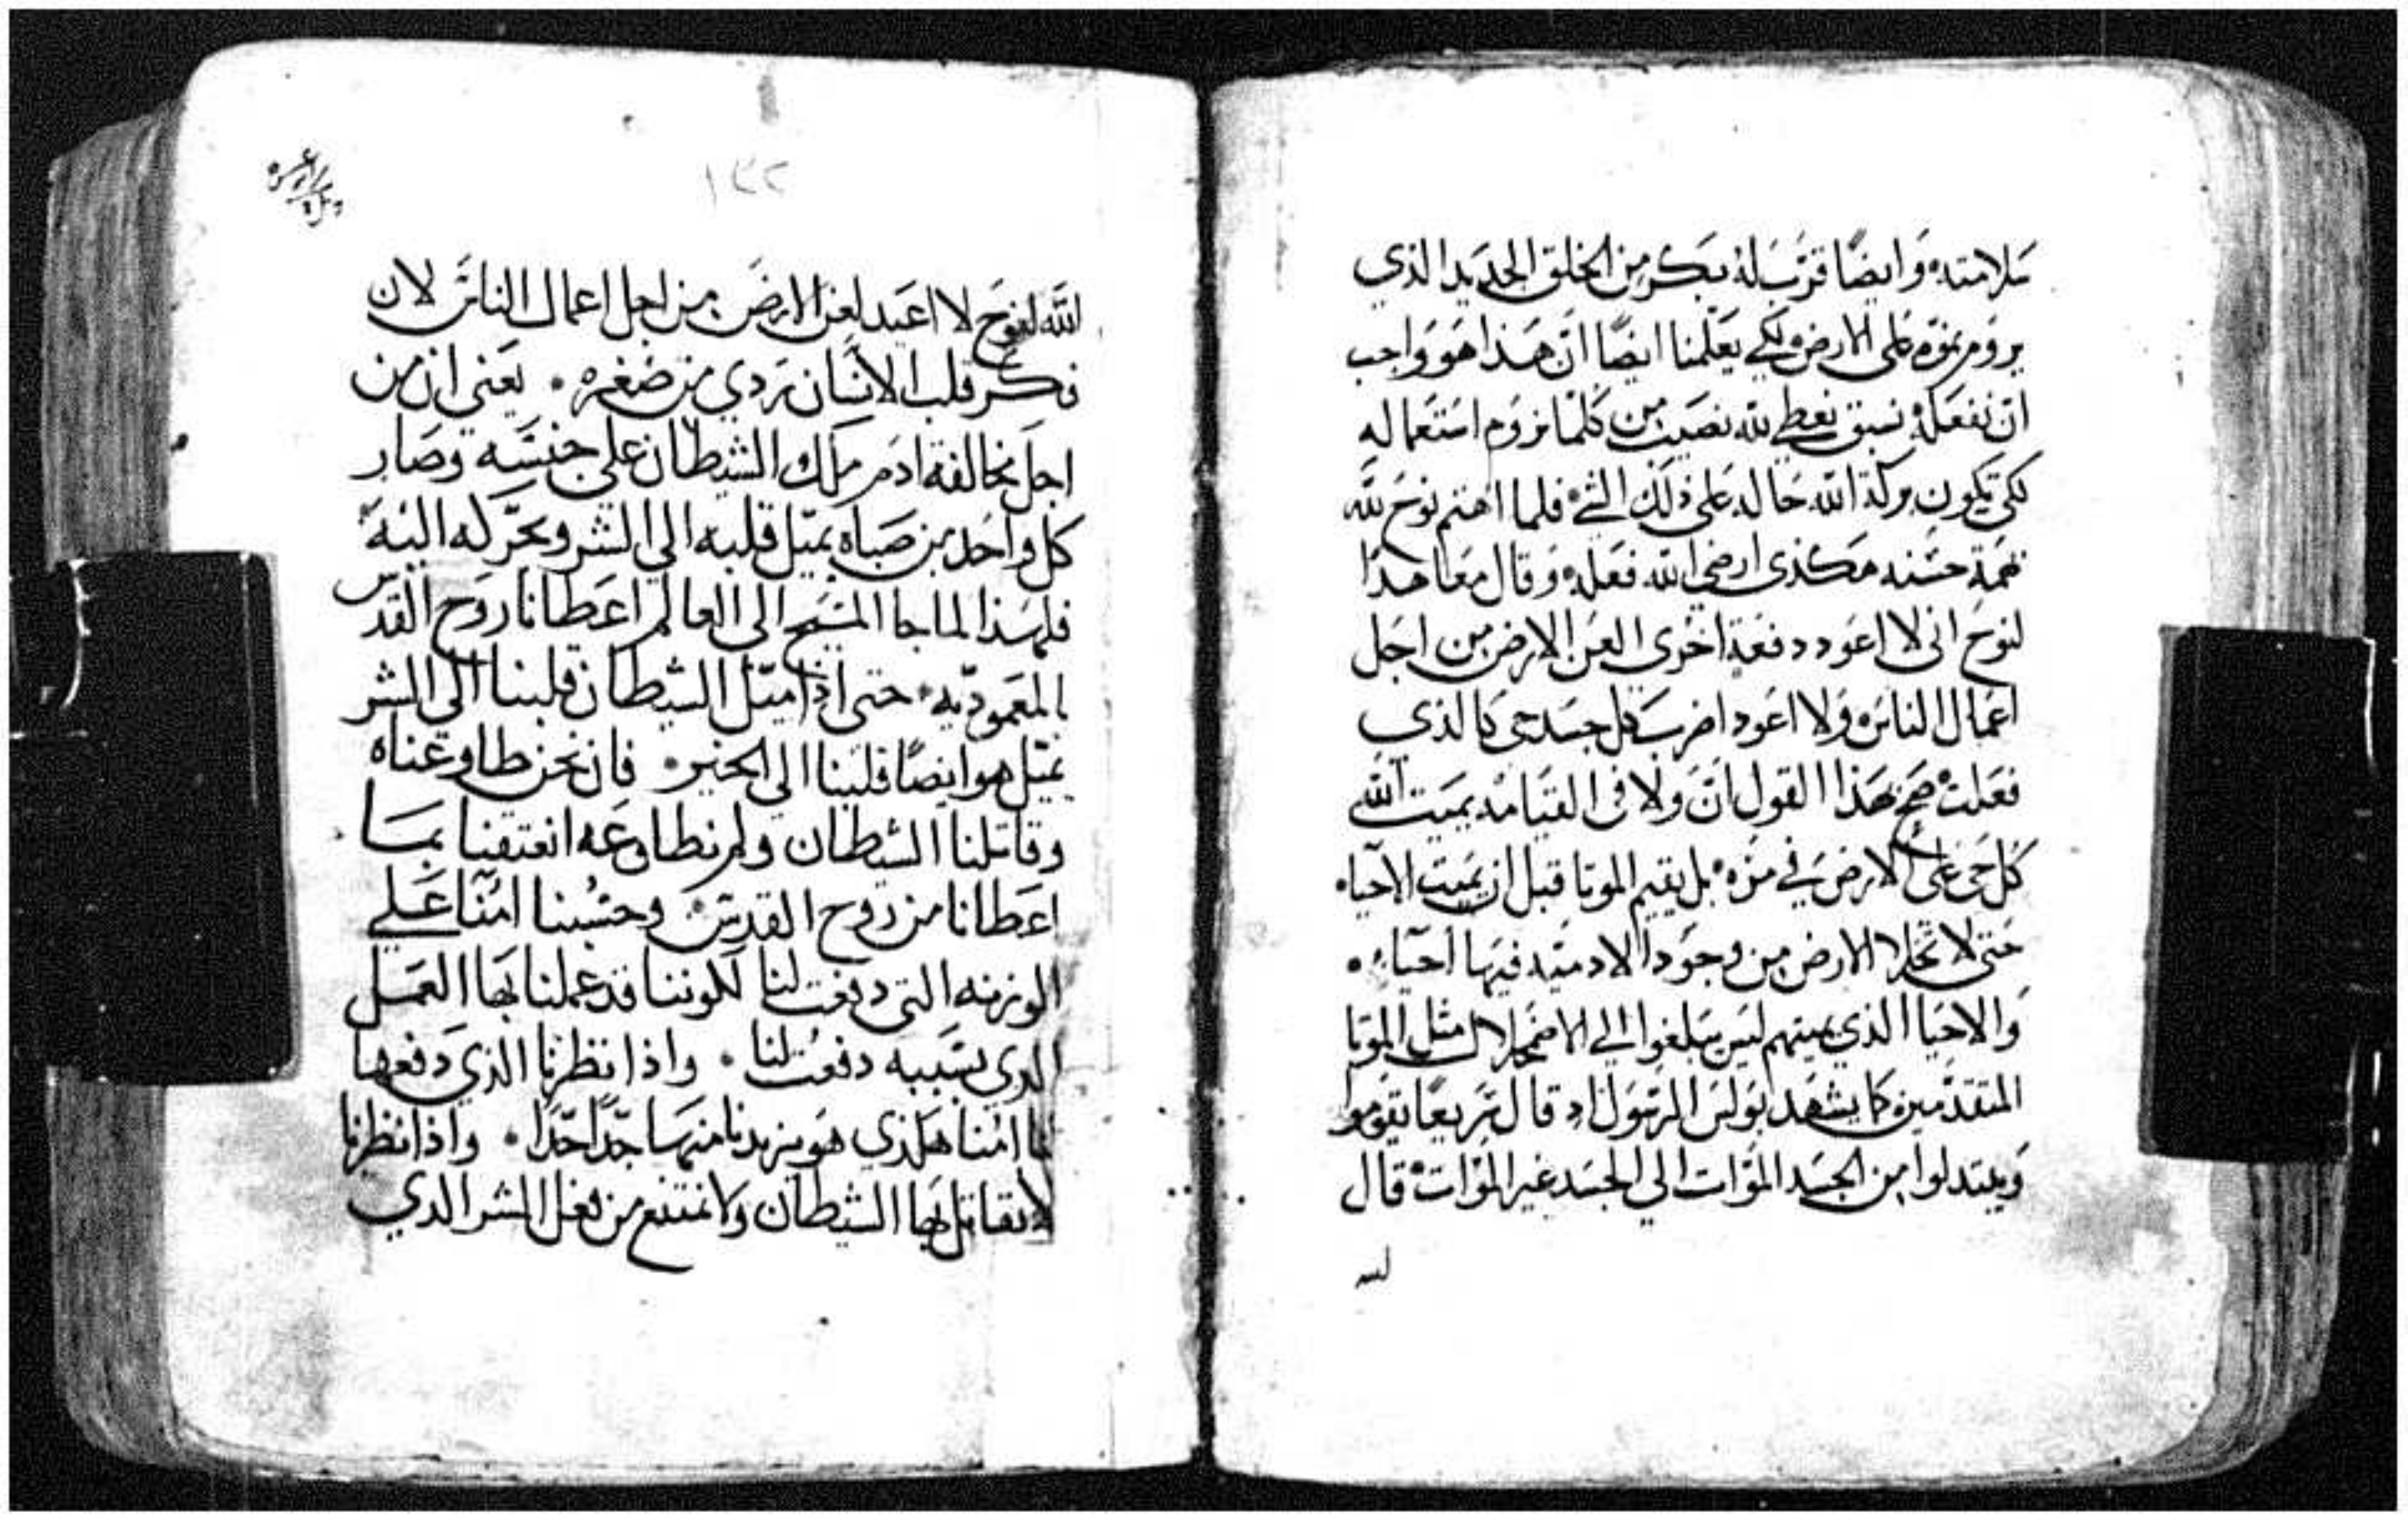 سلامته وايضًا قرب له بكر من الخلق الجديد الذي
يروم نموه على الارض لكي يعلمنا ايضًا ان هذا هو واجب
ان نفعله نسبق نعطي لله نصيب من كلما نروم استعماله
لكي تكون بركة الله حاله على ذلك الشي فلما اهتم نوح لله
همة حسنه هكذى ارضى الله فعله وقال معاهدًا
لنوح اني لا اعود دفعة اخرى العن الارض من اجل
اعمال الناس ولا اعود اضرب كل جسد حي كالذي
فعلت صح بهذا القول ان ولا في القيامه يميت الله
كل حي على الارض في مره بل يقيم الموتا قبل ان يميت الاحياء
حتى لا تخلا الارض من وجود الادميه فيها احياء
والاحيا الذي يميتهم ليس يبلغوا الي الاضمحلال مثل الموتا
المتقدمين كما يشهد بولس الرسول اذ قال سريعًا يقوموا
ويبتدلوا من الجسد المؤات الي الجسد غير المؤات قال
لله
١٣٢
الله لنوح لا اعيد لعن الارض من اجل اعمال الناس لان
فكر قلب الانسان ردي من صغره يعني ان من
اجل مخالفة ادم ملك الشيطان علي جنسه وصار
كل واحد من صباه يميل قلبه الي الشر ويحركه اليه
فلهذا لما جا المسيح الى العالم اعطانا روح القدس
بالمعموديه حتى اذا ميل الشيطان قلبنا الي الشر
يميل هو ايضًا قلبنا الي الخير فان نحن طاوعناه
وقاتلنا الشيطان ولم نطاوعه انعتقنا بما
اعطانا من روح القدس وحسبنا امنا علي
الوزنه التي دفعت لنا لكوننا قد عملنا بها العمل
الدي بسببه دفعت لنا واذا نظرنا الذي دفعها
لنا امنا هكذي هو يزيدنا منها جدًا جدًا واذا نظرنا
لا نقاتل بها الشيطان ولا نمتنع من فعل الشر الدي